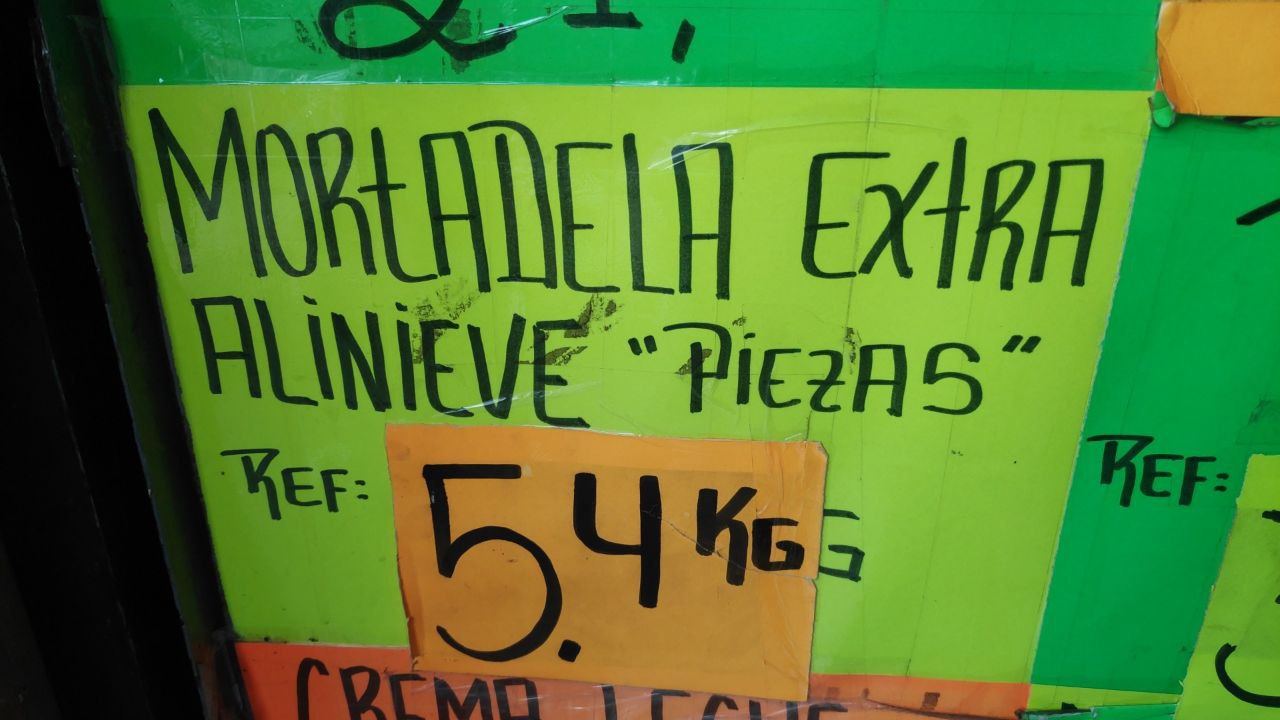 MORtADELA ExtRA
ALiNiEVE "PiEzAS"
REF: 5.4 KGG
REF:
CREMA LECHE